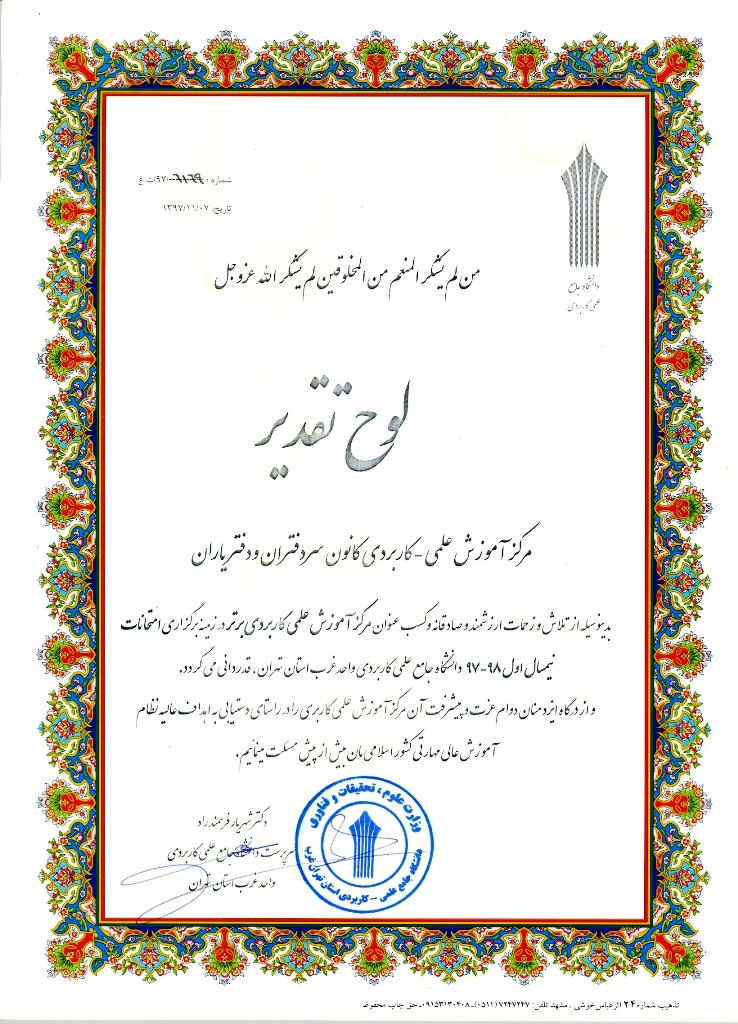 دانشگاه جامع
علمی کاربردی
شماره: ۹۷/-۶۱۶۹/ت غ
تاریخ: ۱۳۹۷/۱۱/۰۷
من لم یشکر المنعم من المخلوقین لم یشکر الله عزوجل
لوح تقدیر
مرکز آموزش علمی - کاربردی کانون سردفتران و دفتریاران
بدینوسیله از تلاش و زحمات ارزشمند و صادقانه و کسب عنوان مرکز آموزش علمی کاربردی برتر در زمینه برگزاری امتحانات
نیمسال اول ۹۸-۹۷ دانشگاه جامع علمی کاربردی واحد غرب استان تهران، قدردانی می گردد.
و از درگاه ایزد منان دوام عزت و پیشرفت آن مرکز آموزش علمی کاربری را در راستای دستیابی به اهداف عالیه نظام
آموزش عالی مهارتی کشور اسلامی مان بیش از پیش مسئلت مینمائیم.
دکتر شهریار فرهمند راد
سرپرست دانشگاه جامع علمی کاربردی
واحد غرب استان تهران
وزارت علوم، تحقیقات و فناوری
دانشگاه جامع علمی - کاربردی استان تهران غرب
تذهیب شماره ۲۴ اثر عباس خوشی ـ مشهد تلفن: ۷۲۴۷۲۴۷ (۰۵۱۱)ـ ۰۹۱۵۳۱۳۰۴۰۸ ـ حق چاپ محفوظ